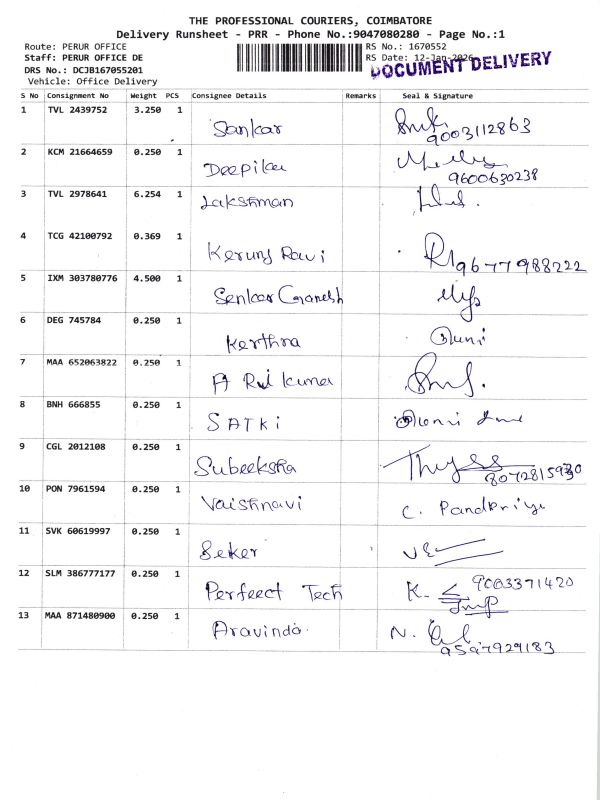 THE PROFESSIONAL COURIERS, COIMBATORE
Delivery Runsheet - PRR - Phone No.:9047080280 - Page No.:1
Route: PERUR OFFICE RS No.: 1670552
Staff: PERUR OFFICE DE RS Date: 12-Jan-2026
DOCUMENT DELIVERY
DRS No.: DCJB167055201
Vehicle: Office Delivery
S No Consignment No Weight PCS Consignee Details Remarks Seal & Signature
1 TVL 2439752 3.250 1 Sankar 9003112863
2 KCM 21664659 0.250 1 Deepika 9600630238
3 TVL 2978641 6.254 1 Lakshman
4 TCG 42100792 0.369 1 Ravi 9677988222
5 IXM 303780776 4.500 1 Senkar Ganesh
6 DEG 745784 0.250 1 Kerthna
7 MAA 652063822 0.250 1
8 BNH 666855 0.250 1 SATKi
9 CGL 2012108 0.250 1 Subeeksha
10 PON 7961594 0.250 1 Vaishnavi C. Pandpriya
11 SVK 60619997 0.250 1 Seker
12 SLM 386777177 0.250 1 Perfeect Tech K. 9003371420
13 MAA 871480900 0.250 1 Aravinda N. 9597929183